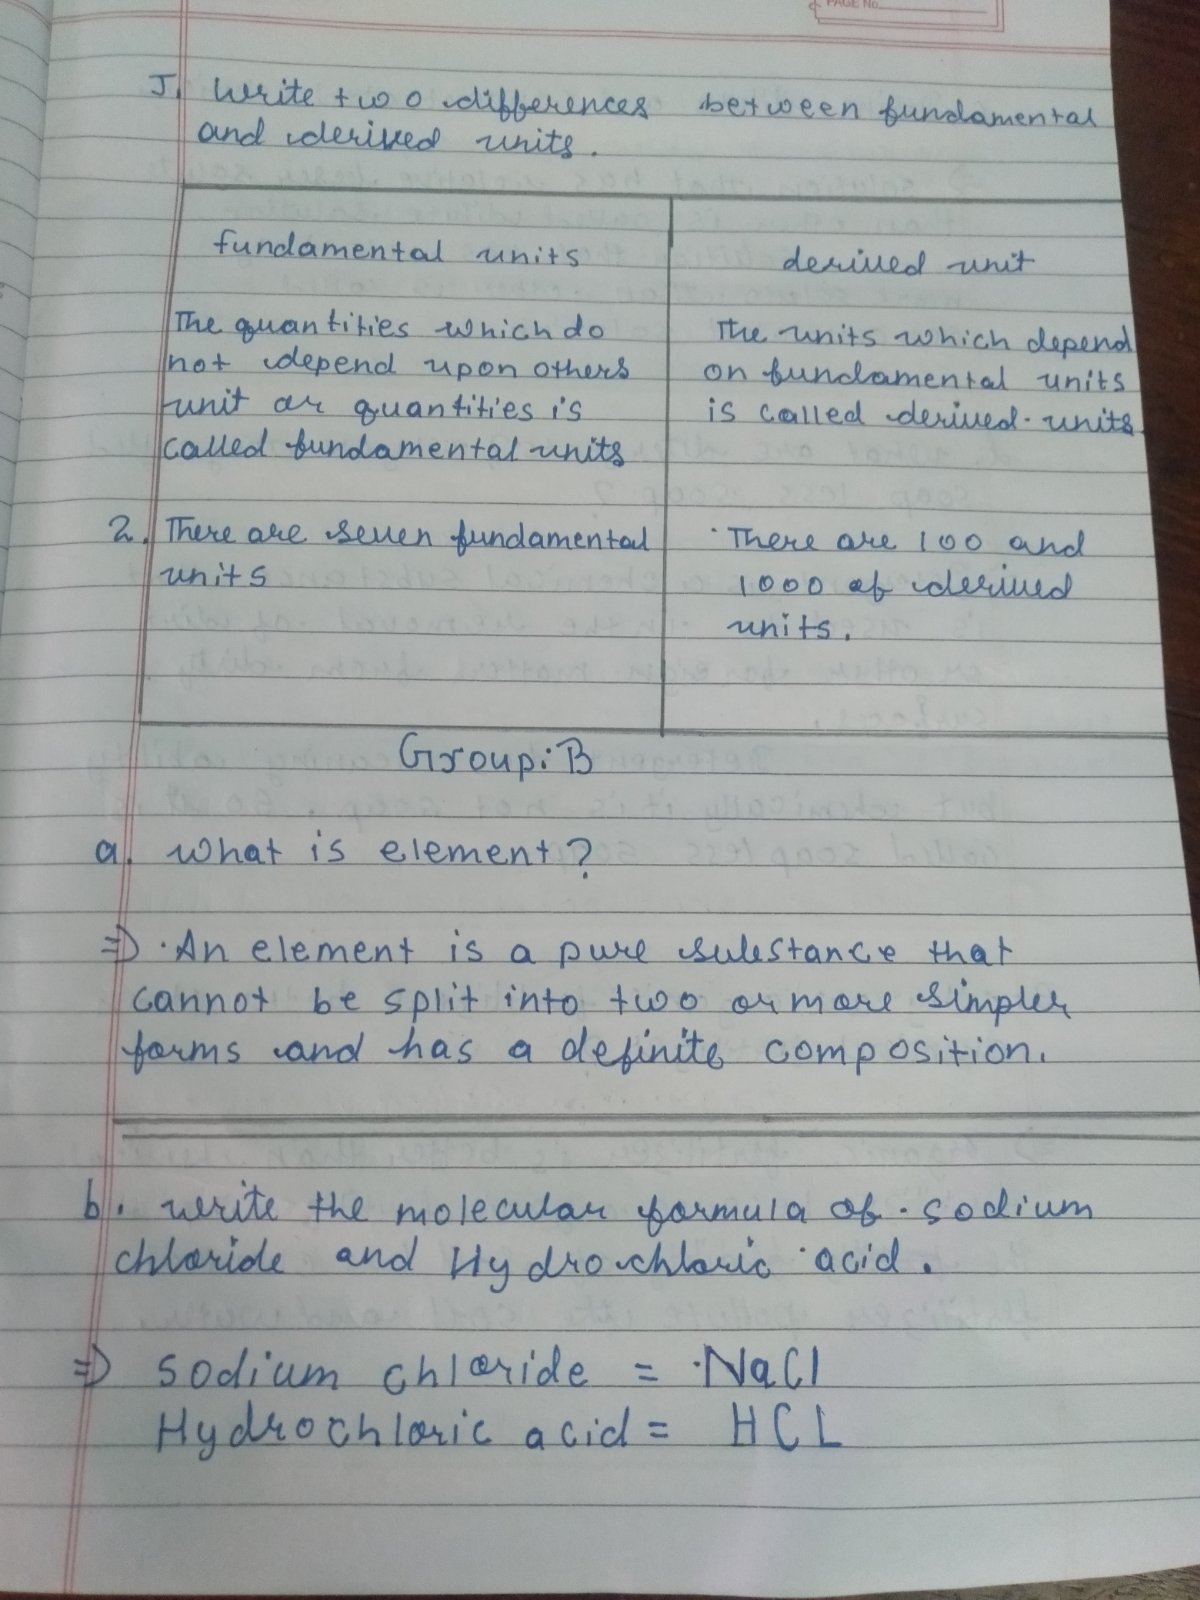 PAGE No.
J. Write two differences between fundamental
and derived units.
fundamental units
derived unit
The quantities which do
not depend upon others
unit or quantities is
called fundamental units
The units which depend
on fundamental units
is called derived units.
2. There are seven fundamental
units
There are 100 and
1000 of derived
units.
Group: B
a. What is element?
⇒ An element is a pure substance that
cannot be split into two or more simpler
forms and has a definite composition.
b. write the molecular formula of sodium
chloride and Hydrochloric acid.
⇒ Sodium chloride = NaCl
Hydrochloric acid = HCL